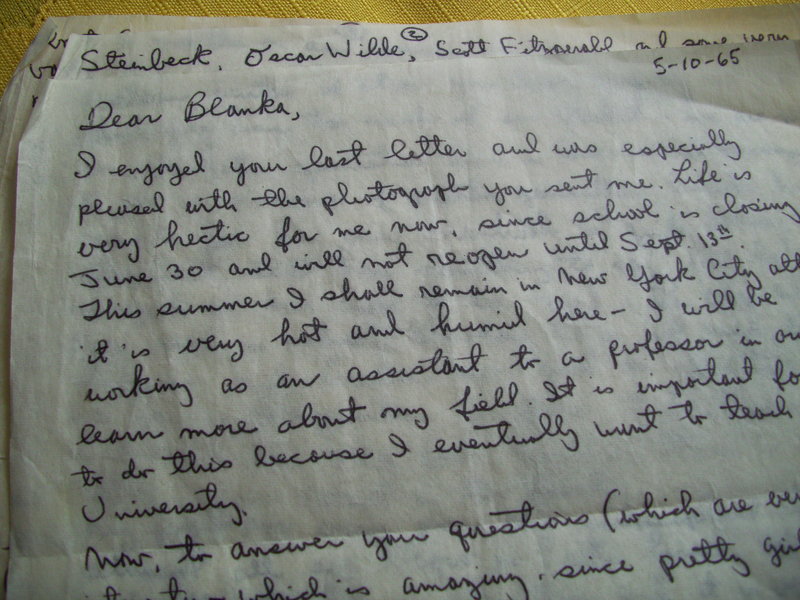 Steinbeck, Oscar Wilde, Scott Fitzgerald and some
2
5-10-65
Dear Blanka,
I enjoyed your last letter and was especially
pleased with the photograph you sent me. Life is
very hectic for me now, since school is closing
June 30 and will not reopen until Sept. 13th.
This summer I shall remain in New York City alth
it is very hot and humid here – I will be
working as an assistant to a professor in
learn more about my field. It is important fo
to do this because I eventually want to teach
University.
Now, to answer your questions (which are ver
which is amazing, since pretty girl